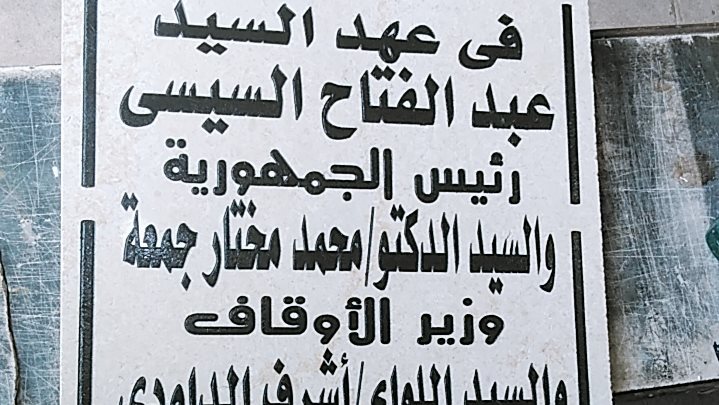 فى عهد السيد
عبد الفتاح السيسى
رئيس الجمهورية
والسيد الدكتو/محمد مختار جمعة
وزير الأوقاف
والسيد اللواء/أشرف الداودى